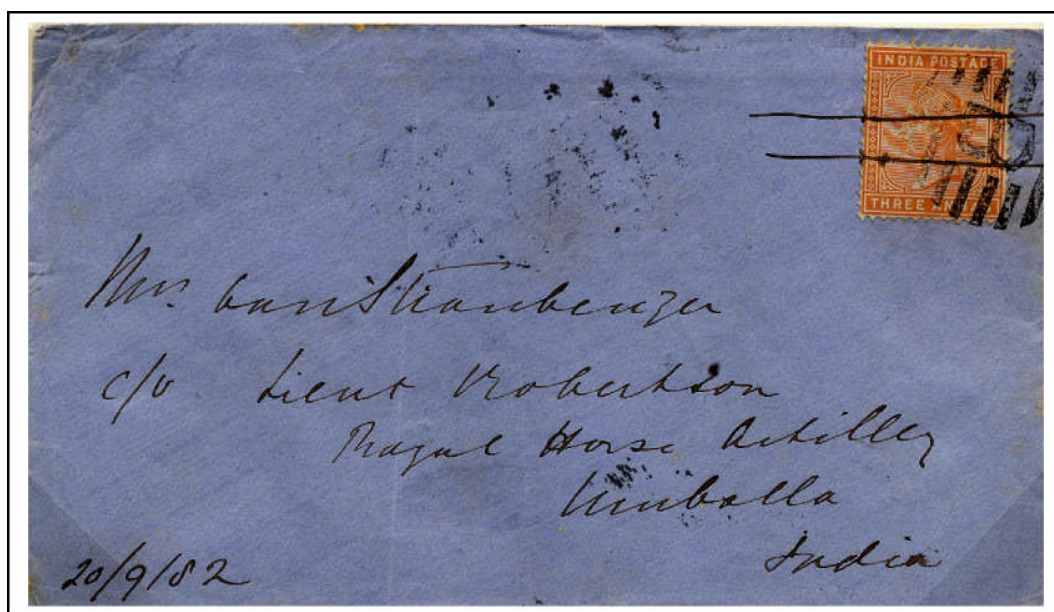 INDIA POSTAGE
THREE ANNAS
Mrs. vanStraubenzee
c/o Lieut Robertson
Royal Horse Artillery
Umballa
India
20/9/82